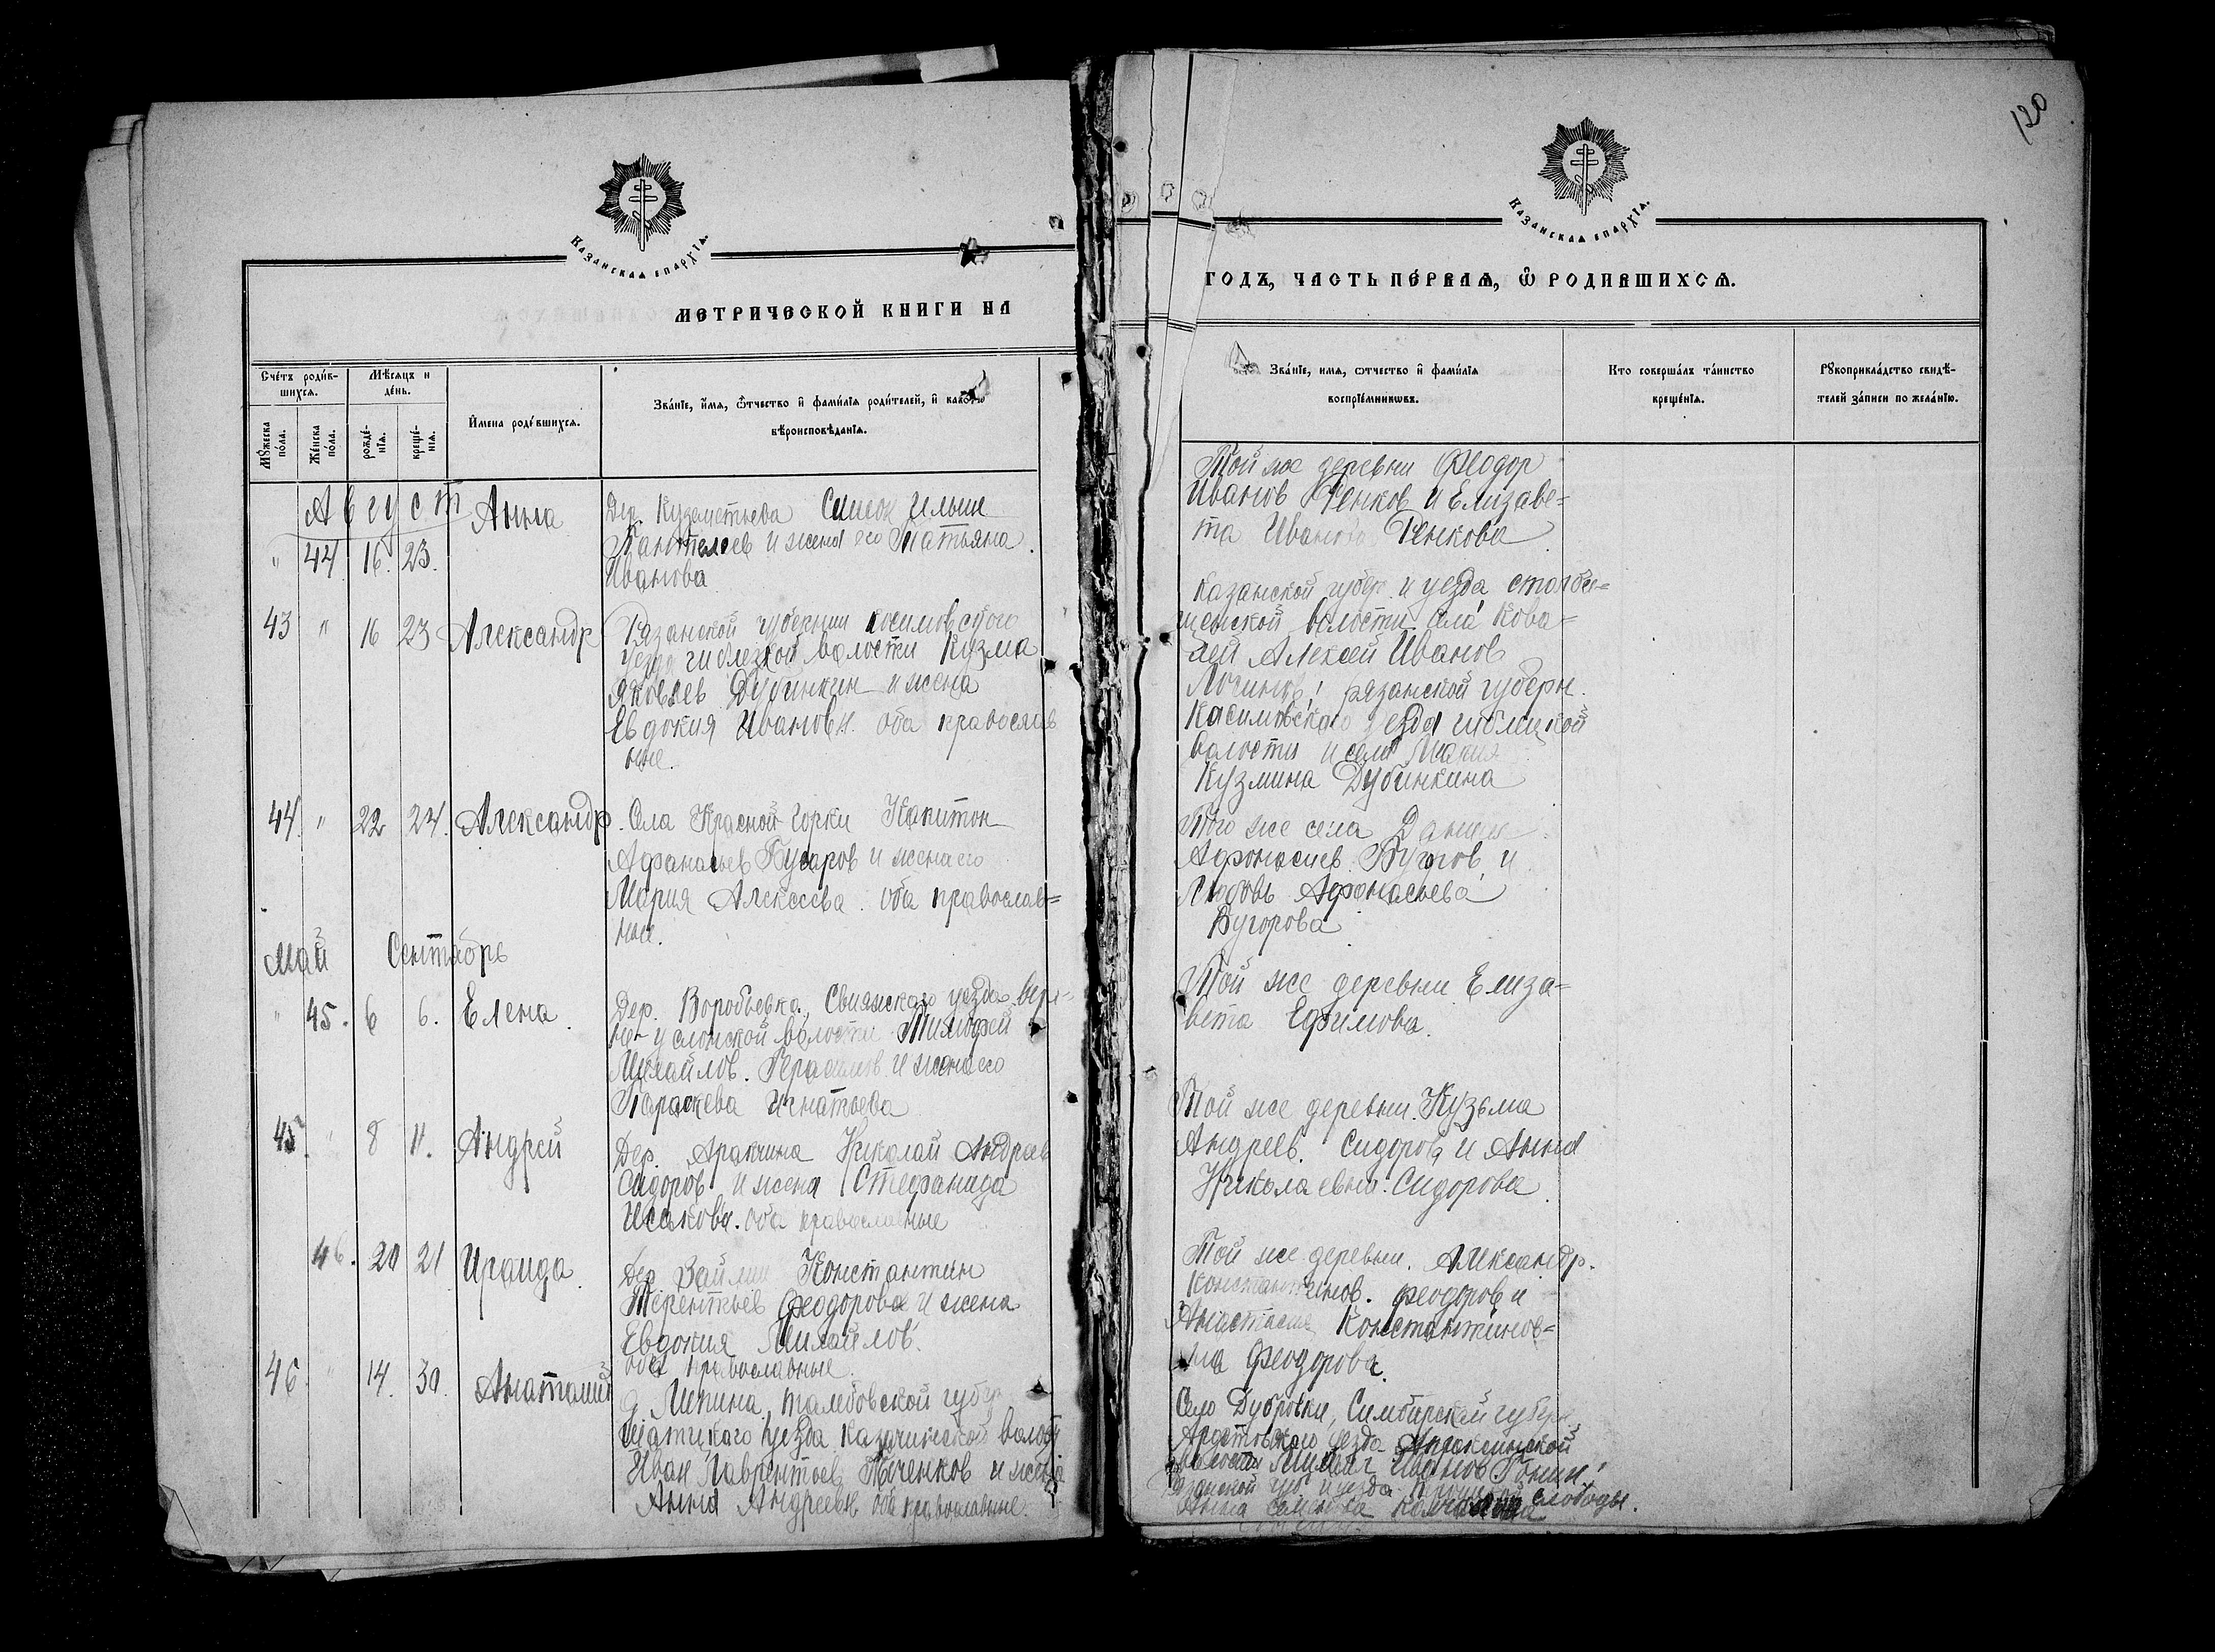 КАЗАНСКАЯ ЕПАРХІЯ.
МЕТРИЧЕСКОЙ КНИГИ НА
Счетъ родив-
шихся.
Мѣсяцъ и
день.
Мужеска
пола.
Женска
пола.
рожде-
нія.
креще-
нія.
Имена родившихся.
Званіе, имя, отчество и фамилія родителей, и какого
вѣроисповѣданія.
Август
44 16 23.
Анна
Дер. Куземетьева Симеон Ильин
Пантелеев и жена его Татьяна
Иванова
43 " 16 23 Александр
Рязанской губернии Косимовского
уезда волости Кузма
Яковлев Дубинкин и жена
Евдокия Ивановн. оба православ
ные.
44. " 22 24. Александр.
Села Красной Горки Капитон
Афанасьев Бугаров и жена его
Мария Алексеева. оба православ=
ные.
Май Сентябрь
" 45. 6 6. Елена.
Дер. Воробьевка, Свияжскаго уезда вер-
не-услонской волости Тимофей
Михайлов. Герасимов и жена его
Параскева Игнатьева
45. " 8 11. Андрей
Дер. Аракчина Николай Андреев
Сидоров и жена Стефанида
Исакова. Оба православные
46. 20 21 Ираида.
Дер. Займищ Константин
Терентьев Феодоров и жена
Евдокия Михайлов.
оба православные.
46 " 14. 30. Анатолий
д. Липина, тамбовской губер
шатцкаго уезда Казачинской волост
Иван Лаврентьев и жена
Анна Андреевн оба православные.
120
КАЗАНСКАЯ ЕПАРХІЯ.
ГОДЪ, ЧАСТЬ ПЕРВАЯ, Ѡ РОДИВШИХСЯ.
Званіе, имя, отчество и фамилія
воспріемниковъ.
Кто совершалъ таинство
крещенія.
Рукоприкладство свидѣ-
телей записи по желанію.
Той же деревни Феодор
Иванов Ренков и Елизаве=
та Иванова Ренкова
Казанской губер. и уезда столби=
щенской волости села Кова=
лей Алексей Иванов
Логинов! рязанской губерн.
Касимовскаго уезда гиблицкой
волости и села Мария
Кузмина Дубинкина
Того же села Даниил
Афонасиев Бугров и
Любовь Афонасьева
Бугорова
Той же деревни Елиза=
вета Ефимова.
Той же деревни Кузьма
Андреев. Сидоров и Анна
Николаевна Сидорова
Той же деревни. Александр.
Константинов. Феодоров и
Анастасия Константинов=
на Феодорова.
Село Дубровки, Симбирской губерн.
уезда
волости Михаил Иванов
губ. и уезда слободы.
Анна